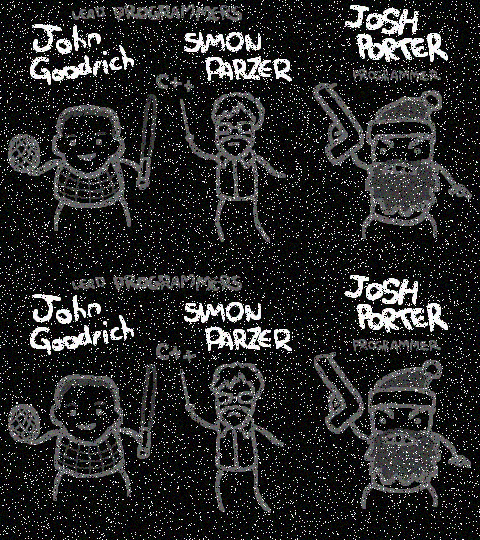 LEAD PROGRAMMERS
John
Goodrich
SIMON
PARZER
C++
JOSH
PORTER
PROGRAMMER
LEAD PROGRAMMERS
John
Goodrich
SIMON
PARZER
C++
JOSH
PORTER
PROGRAMMER